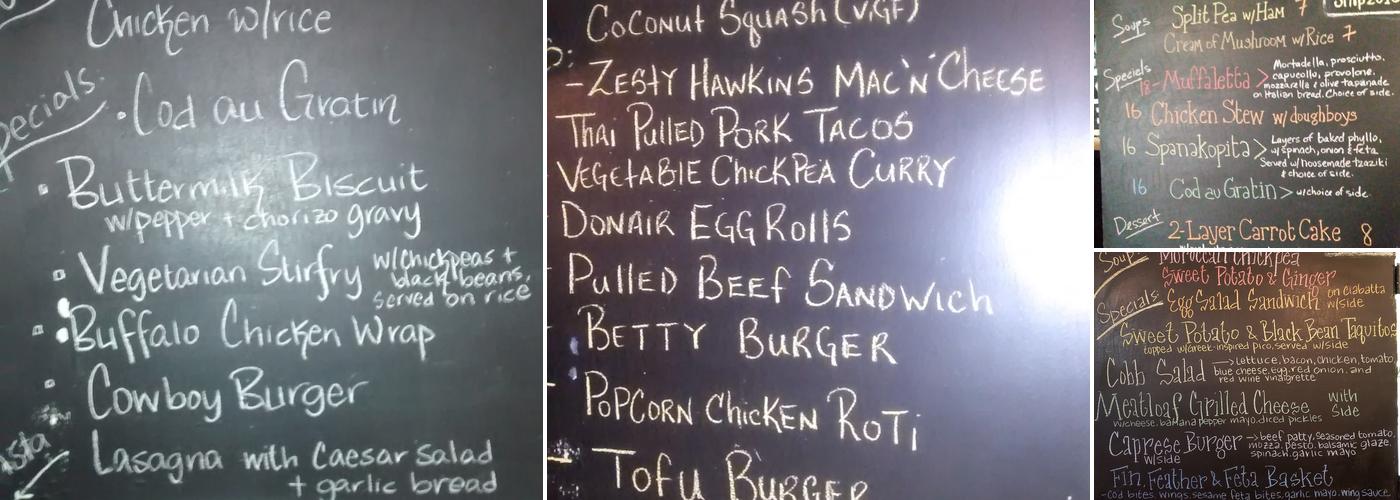 Chicken w/rice
Specials:
• Cod au Gratin
Buttermilk Biscuit
w/pepper + chorizo gravy
Vegetarian Stirfry w/chickpeas +
black beans,
served on rice
Buffalo Chicken Wrap
Cowboy Burger
Lasagna with Caesar Salad
+ garlic bread
COCONUT SQUASH (V,GF)
- ZESTY HAWKINS MAC'N'CHEESE
THAI PULLED PORK TACOS
VEGETABLE CHICKPEA CURRY
DONAIR EGG ROLLS
PULLED BEEF SANDWICH
BETTY BURGER
POPCORN CHICKEN ROTI
TOFU BURGER
Soups
Split Pea w/Ham 7
Cream of Mushroom w/Rice 7
Specials
18-Muffaletta > Mortadella, prosciutto,
capucollo, provolone,
mozzarella & olive tapanade
on Italian bread. Choice of side.
16 Chicken Stew w/doughboys
16 Spanakopita > Layers of baked phyllo,
w/spinach, onion & feta
Served w/housemade tzaziki
& choice of side.
16 Cod au Gratin > w/choice of side
Dessert
2-Layer Carrot Cake 8
Soup
Moroccan Chickpea
Sweet Potato & Ginger
Specials
Egg Salad Sandwich on ciabatta
w/side
Sweet Potato & Black Bean Taquitos
topped w/Greek-inspired pico, served w/side
Cobb Salad → lettuce, bacon, chicken, tomato,
blue cheese, egg, red onion, and
red wine vinaigrette
Meatloaf Grilled Cheese with
Side
w/cheese, banana pepper mayo, diced pickles
Caprese Burger → beef patty, seasoned tomato,
w/side
mozza, pesto, balsamic glaze,
spinach, garlic mayo
Fin, Feather & Feta Basket
-cod bites, wings, sesame feta bites, garlic mayo, wing sauce